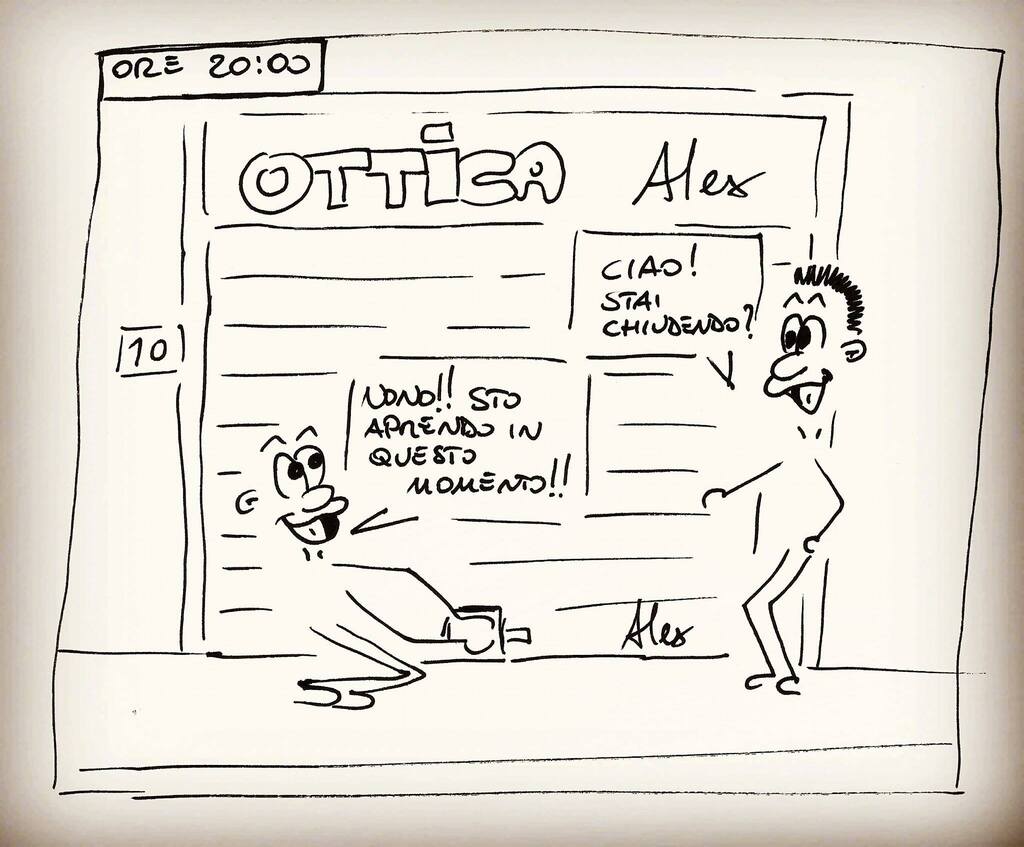 ORE 20:00
OTTICA Alex
CIAO!
STAI
CHIUDENDO?
10
NONO!! STO
APRENDO IN
QUESTO
MOMENTO!!
Alex